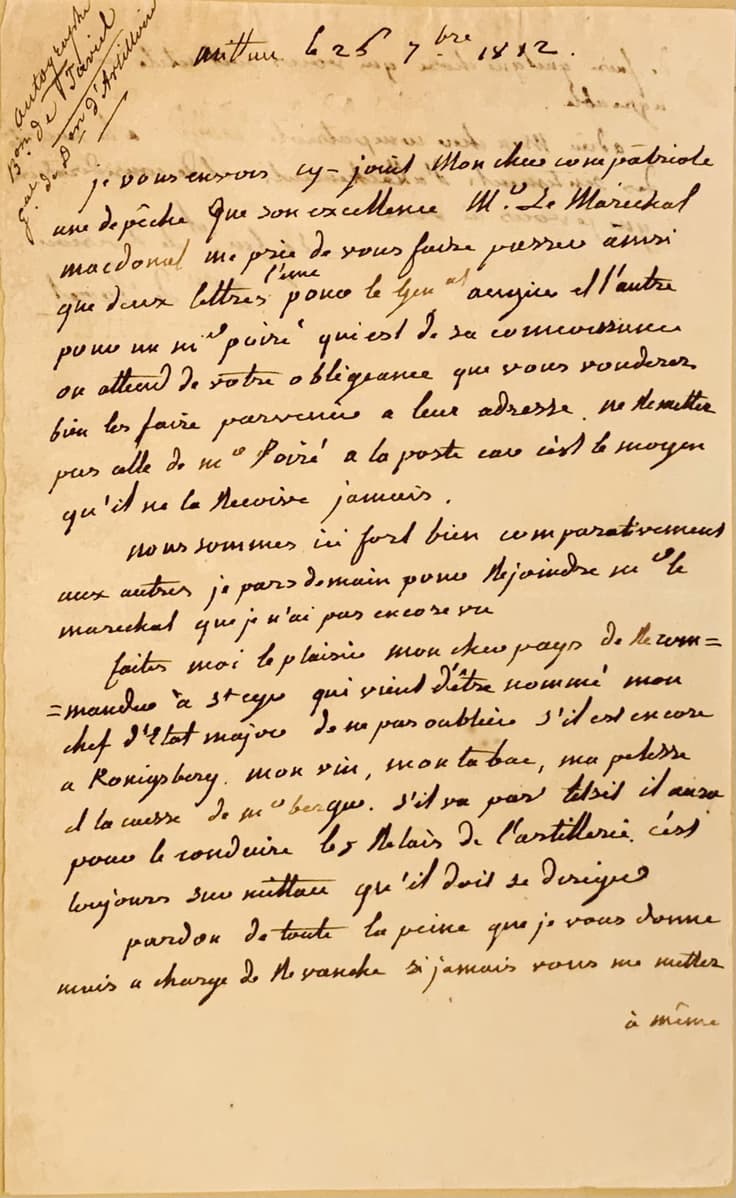 autographe
Bon de Taviel
gal de Don d'Artillerie
mittau le 26 7bre 1812.
je vous envois cy-joint Mon cher compatriote
une depêche que son excellence Mr. Le Maréchal
macdonal me prie de vous faire passer ainsi
que deux lettres l'une pour le Genal et l'autre
pour un mr poiré qui est de sa connoissance
on attend de votre obligeance que vous vouderez
bien les faire parvenir a leur adresse. ne Remettez
pas celle de mr Poiré a la poste car c'est le moyen
qu'il ne la Recoive jamais.
nous sommes ici fort bien comparativement
aux autres je pars demain pour Rejoindre mr le
marechal que je n'ai pas encore vu
faites moi le plaisir mon cher pays de Recom=
=mander à St cyr qui vient d'être nommé mon
chef d'Etat major de ne pas oublier s'il est encore
a Konigsberg. mon vin, mon tabac, ma pelisse
et la caisse de mr berge. s'il va par tilsit il aura
pour le conduire les Relais de l'artillerie. c'est
toujours sur mittau qu'il doit se diriger
pardon de toute la peine que je vous donne
mais a charge de Revanche si jamais vous me mettez
à même